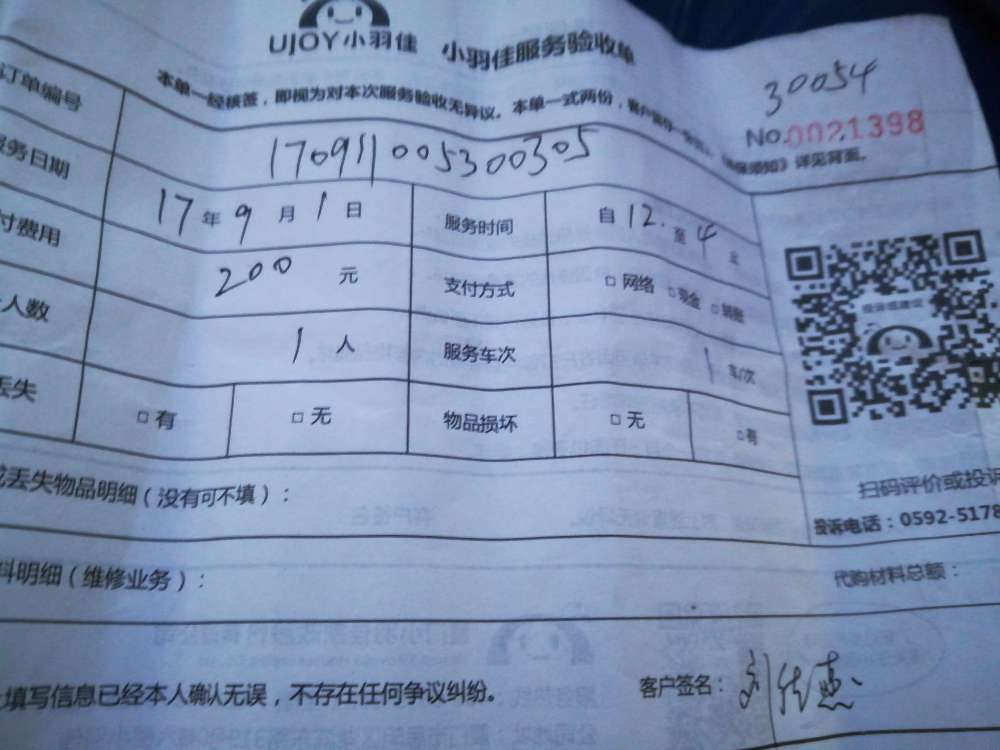 UJOY小羽佳 小羽佳服务验收单
30054
本单一经核签，即视为对本次服务验收无异议。本单一式两份，
No.0021398
详见背面。
订单编号 170911005300305
服务日期 17年9月1日 服务时间 自12.至4
付费用 200元 支付方式 □网络 □现金 □转账
人数 1人 服务车次 1车/次
丢失 □有 □无 物品损坏 □无 □有
投诉或建议
扫码评价或投诉
投诉电话：0592-5178
丢失物品明细（没有可不填）：
料明细（维修业务）： 代购材料总额：
填写信息已经本人确认无误，不存在任何争议纠纷。 客户签名：